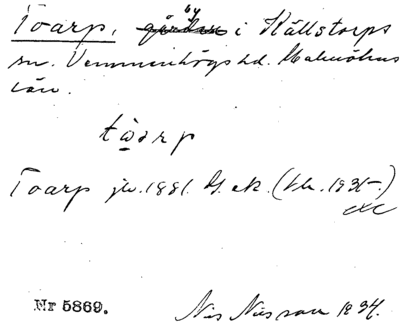 Toarp, by i Källstorps
sn. Vemmenhögs hd. Malmöhus
län.
tωarp
Toarp jr. 1881. G. ek. (bl. 1935.)
Nr 5869.
Nils Nilsson 1934.